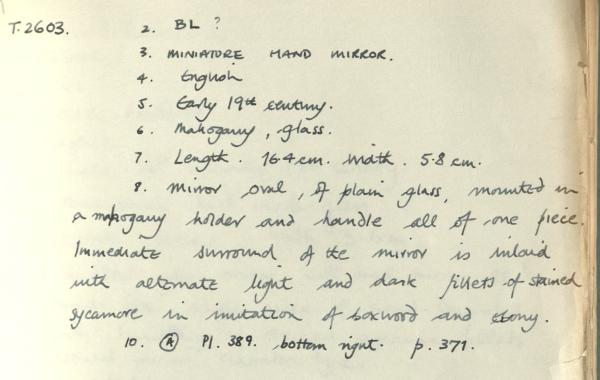 T.2603. 2. BL ?
3. MINIATURE HAND MIRROR.
4. English
5. Early 19th century.
6. Mahogany, glass.
7. Length. 16.4 cm. Width. 5.8 cm.
8. Mirror oval, of plain glass, mounted in
a mahogany holder and handle all of one piece.
Immediate surround of the mirror is inlaid
with alternate light and dark fillets of stained
sycamore in imitation of boxwood and ebony.
10. Ⓐ Pl. 389. bottom right. p. 371.